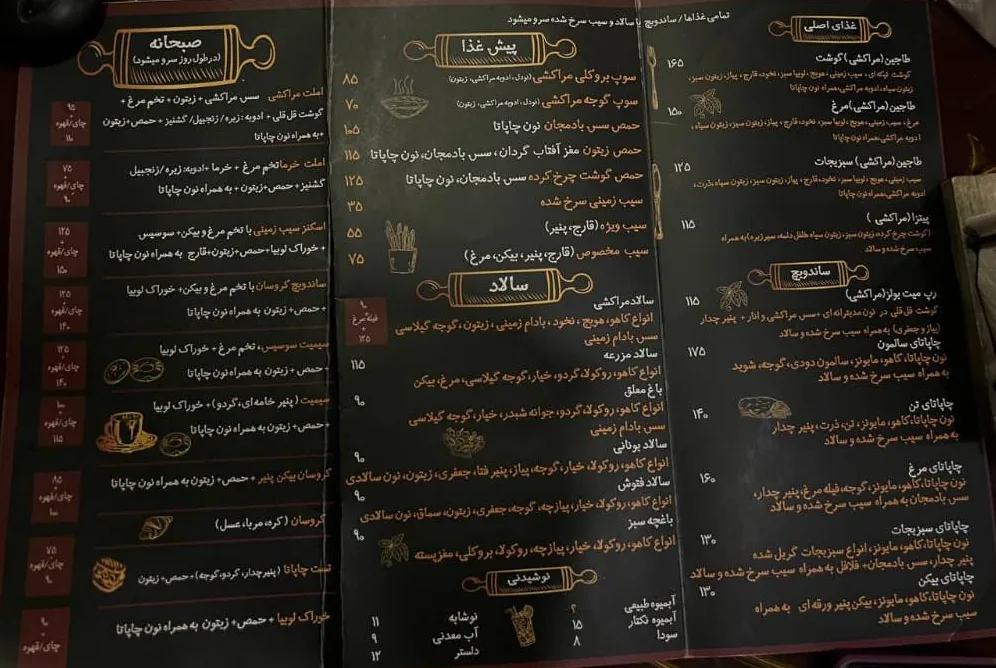 تمامی غذاها / ساندویچ با سالاد و سیب سرخ شده سرو میشود
غذای اصلی
طاجین(مراکشی) گوشت
۱۶۵
گوشت تیکه ای ، سیب زمینی، هویج ، لوبیا سبز، نخود، قارچ ، پیاز، زیتون سبز،
زیتون سیاه، ادویه مراکشی،همراه نون چاپاتا
طاجین(مراکشی)مرغ
۱۵۰
مرغ، سیب زمینی، هویج ، لوبیا سبز، نخود، قارچ ، پیاز، زیتون سبز، زیتون سیاه ،
ادویه مراکشی،همراه نون چاپاتا
طاجین(مراکشی) سبزیجات
۱۲۵
سیب زمینی، هویج ، لوبیا سبز، نخود، قارچ ، پیاز، زیتون سبز، زیتون سیاه ،ذرت،
ادویه مراکشی،همراه نون چاپاتا
پیتزا(مراکشی )
۱۱۵
(گوشت چرخ کرده، زیتون سبز، زیتون سیاه ،فلفل دلمه، سیر،زیره) به همراه
سیب سرخ شده و سالاد
ساندویچ
رپ میت بولز(مراکشی)
۱۱۵
گوشت قل قلی در نون مدیترانه ای +سس مراکشی و انار + پنیر چدار
(پیاز و جعفری) به همراه سیب سرخ شده و سالاد
چاپاتای سالمون
۱۷۵
نون چاپاتا، کاهو، مایونز، سالمون دودی، گوجه، شوید
به همراه سیب سرخ شده و سالاد
چاپاتای تن
۱۴۰
نون چاپاتا،کاهو، مایونز، تن، ذرت، پنیر چدار
به همراه سیب سرخ شده و سالاد
چاپاتای مرغ
۱۶۰
نون چاپاتا،کاهو، مایونز، گوجه،فیله مرغ، پنیر چدار،
سس بادمجان به همراه سیب سرخ شده و سالاد
چاپاتای سبزیجات
۱۳۰
نون چاپاتا،کاهو، مایونز، انواع سبزیجات گریل شده
پنیر چدار، سس بادمجان+ فلافل به همراه سیب سرخ شده و سالاد
چاپاتای بیکن
۱۳۰
نون چاپاتا،کاهو، مایونز، بیکن پنیر ورقه ای به همراه
سیب سرخ شده و سالاد
پیش غذا
سوپ بروکلی مراکشی (نودل، ادویه مراکشی، زیتون) ۸۵
سوپ گوجه مراکشی (نودل، ادویه مراکشی، زیتون) ۷۰
حمص سس بادمجان نون چاپاتا ۱۰۵
حمص زیتون مغز آفتاب گردان ، سس بادمجان، نون چاپاتا ۱۱۵
حمص گوشت چرخ کرده سس بادمجان، نون چاپاتا ۱۲۵
سیب زمینی سرخ شده ۳۵
سیب ویژه (قارچ، پنیر) ۵۵
سیب مخصوص (قارچ، پنیر، بیکن، مرغ) ۷۵
سالاد
سالاد مراکشی
۹۰
فیله مرغ
+
۱۲۵
انواع کاهو، هویج ، نخود، بادام زمینی ، زیتون، گوجه گیلاسی
سس بادام زمینی
سالاد مزرعه
۱۱۵
انواع کاهو، روکولا، گردو، خیار، گوجه گیلاسی، مرغ، بیکن
باغ معلق
۹۰
انواع کاهو، روکولا، گردو، جوانه شبدر، خیار، گوجه گیلاسی
سس بادام زمینی
سالاد یونانی
۹۰
انواع کاهو، روکولا، خیار، گوجه، پیاز، پنیر فتا، جعفری، زیتون، نون سالادی
سالاد فتوش
۹۰
انواع کاهو، روکولا، خیار، پیازچه، گوجه، جعفری، زیتون، سماق، نون سالادی
باغچه سبز
۹۰
انواع کاهو، روکولا، خیار، پیازچه، روکولا، بروکلی، مغزپسته
نوشیدنی
آبمیوه طبیعی ؟
آبمیوه نکتار ۱۵
سودا ۸
نوشابه ۱۱
آب معدنی ۹
دلستر ۱۲
صبحانه
(در طول روز سرو میشود)
املت مراکشی سس مراکشی + زیتون + تخم مرغ +
گوشت قل قلی + ادویه: زیره / زنجبیل/ گشنیز + حمص+زیتون
+به همراه نون چاپاتا
۹۵
+
چای/قهوه
۱۱۰
املت خرما تخم مرغ + خرما +ادویه: زیره / زنجبیل
گشنیز+ حمص+زیتون + به همراه نون چاپاتا
۷۵
+
چای/قهوه
۹۰
اسکنز سیب زمینی با تخم مرغ و بیکن+ سوسیس
+ خوراک لوبیا+حمص+زیتون+قارچ به همراه نون چاپاتا
۱۳۵
+
چای/قهوه
۱۵۰
ساندویچ کروسان با تخم مرغ و بیکن+ خوراک لوبیا
+ حمص+ زیتون به همراه نون چاپاتا
۱۲۵
+
چای/قهوه
۱۴۰
سیمیت سوسیس، تخم مرغ + خوراک لوبیا
+ حمص + زیتون به همراه نون چاپاتا
۱۲۵
+
چای/قهوه
۱۴۰
سیمیت ( پنیر خامه ای، گردو)+ خوراک لوبیا
+ حمص+ زیتون به همراه نون چاپاتا
۱۰۰
+
چای/قهوه
۱۱۵
کروسان بیکن پنیر + حمص+ زیتون به همراه نون چاپاتا
۸۵
+
چای/قهوه
۱۰۰
کروسان ( کره، مربا، عسل)
تست چاپاتا (پنیر چدار، گردو، گوجه)+حمص+ زیتون
۷۵
+
چای/قهوه
۹۰
خوراک لوبیا + حمص+ زیتون به همراه نون چاپاتا
۹۰
+
چای/قهوه